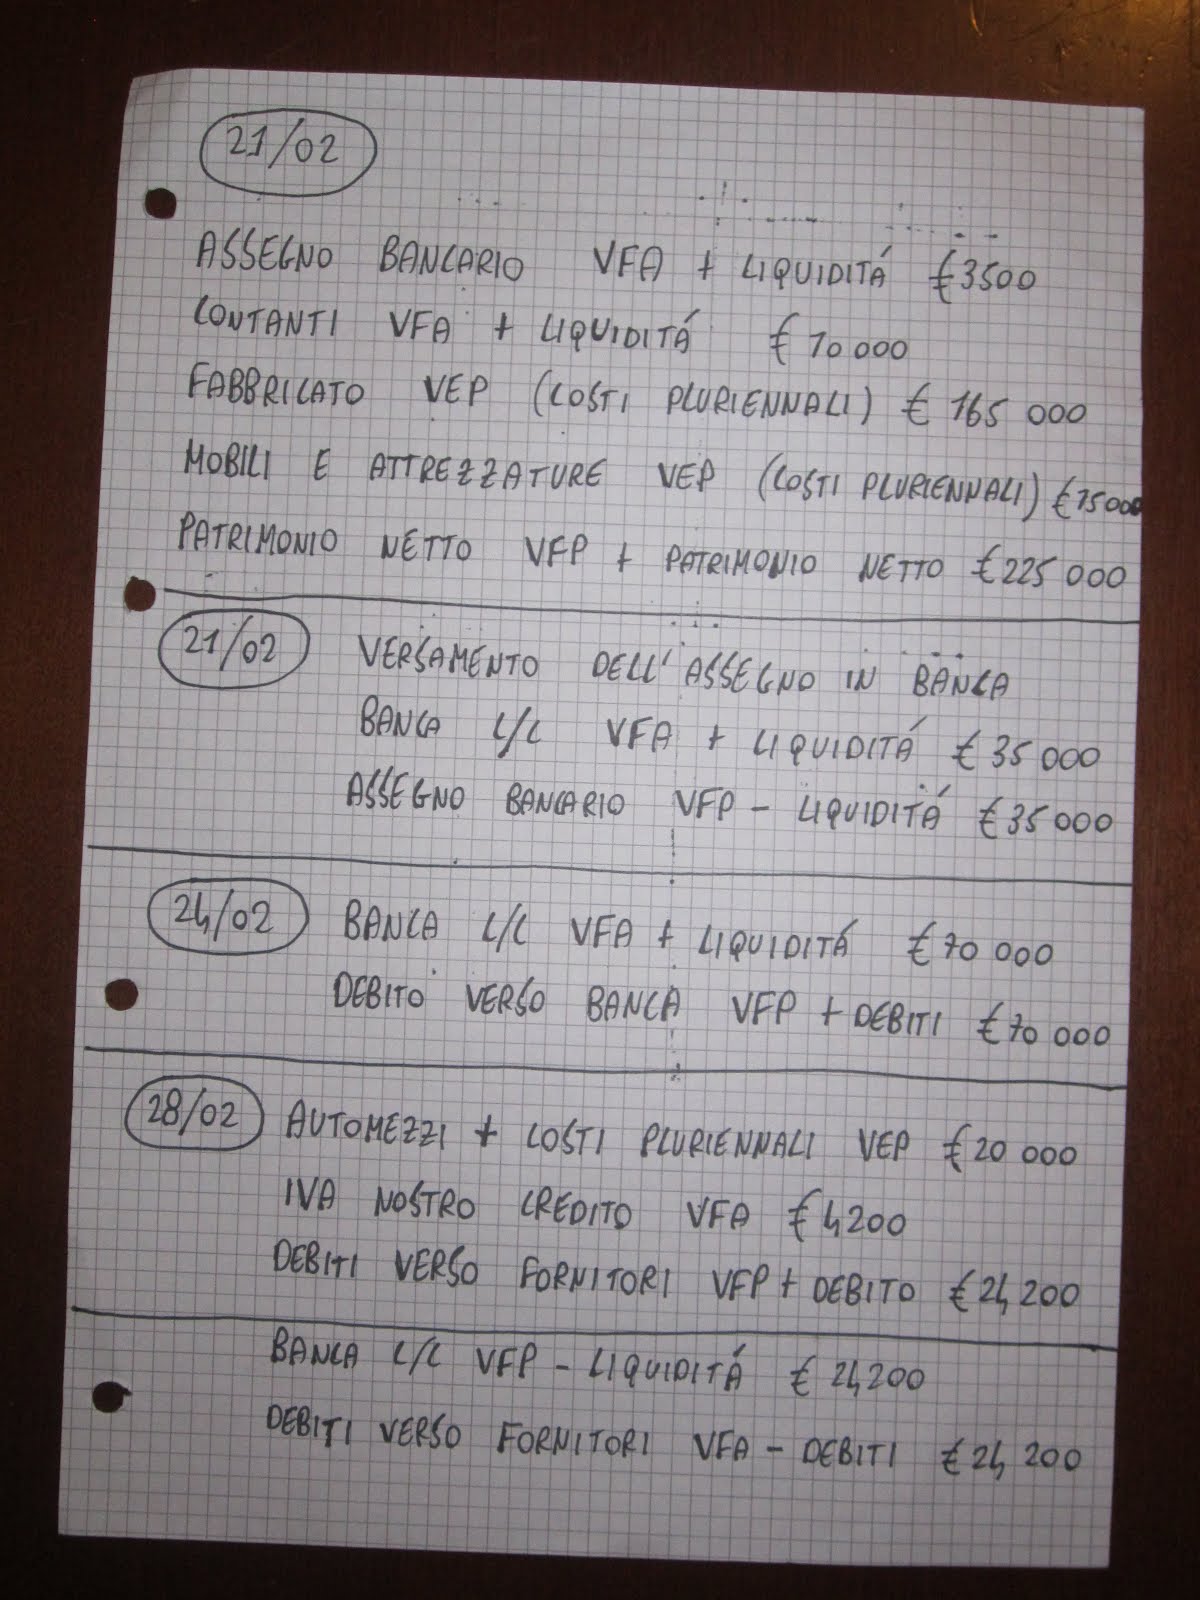 21/02
ASSEGNO BANCARIO VFA + LIQUIDITÁ €3500
CONTANTI VFA + LIQUIDITÁ € 10 000
FABBRICATO VEP (COSTI PLURIENNALI) € 165 000
MOBILI E ATTREZZATURE VEP (COSTI PLURIENNALI) €15000
PATRIMONIO NETTO VFP + PATRIMONIO NETTO €225 000
21/02 VERSAMENTO DELL'ASSEGNO IN BANCA
BANCA C/C VFA + LIQUIDITÁ €35 000
ASSEGNO BANCARIO VFP - LIQUIDITÁ €35 000
24/02 BANCA C/C VFA + LIQUIDITÁ €70 000
DEBITO VERSO BANCA VFP + DEBITI €70 000
28/02 AUTOMEZZI + COSTI PLURIENNALI VEP €20 000
IVA NOSTRO CREDITO VFA €4200
DEBITI VERSO FORNITORI VFP + DEBITO €24 200
BANCA C/C VFP - LIQUIDITÁ € 24200
DEBITI VERSO FORNITORI VFA - DEBITI €24 200